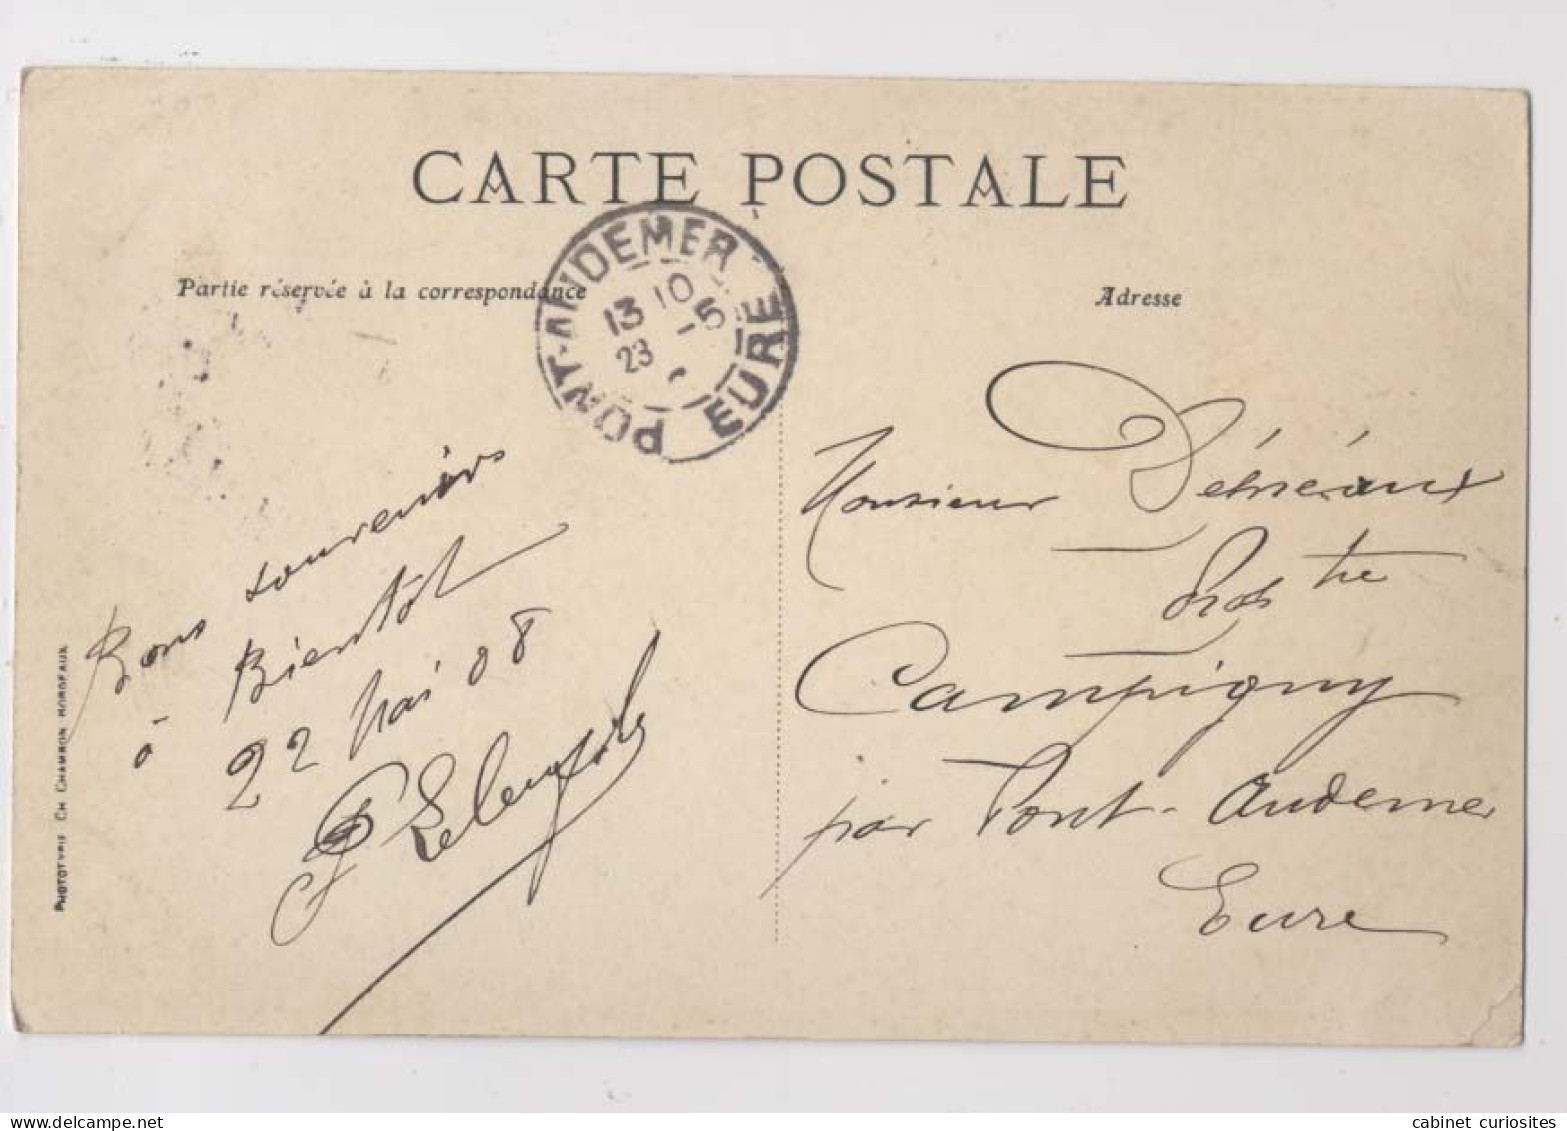 CARTE POSTALE
Partie réservée à la correspondance
Adresse
PONT-AUDEMER EURE
13 10
23 -5
Bons souvenirs
à Bientôt
22 Mai 08
Monsieur
Campigny
par Pont-Audemer
Eure
PHOTOTYPIE CH CHAMBON BORDEAUX
cabinet curiosites